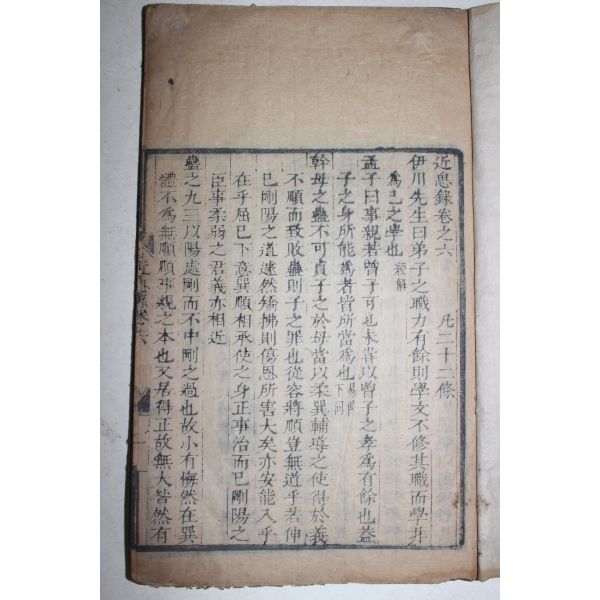 近思錄卷之六
凡二十二條
伊川先生曰弟子之職力有餘則學文不修其職而學非
爲己之學也 經解
孟子曰事親若曾子可也未嘗以曾子之孝爲有餘也蓋
子之身所能爲者皆所當爲也 易傳下同
幹母之蠱不可貞子之於母當以柔巽輔導之使得於義
不順而致敗蠱則子之罪也從容將順豈無道乎若伸
己剛陽之道遽然矯拂則傷恩所害大矣亦安能入乎
在乎屈己下意巽順相承使之身正事治而已剛陽之
臣事柔弱之君義亦相近
蠱之九三以陽處剛而不中剛之過也故小有悔然在巽
體不爲無順順事親之本也又居得正故無大咎然有
近思錄卷六